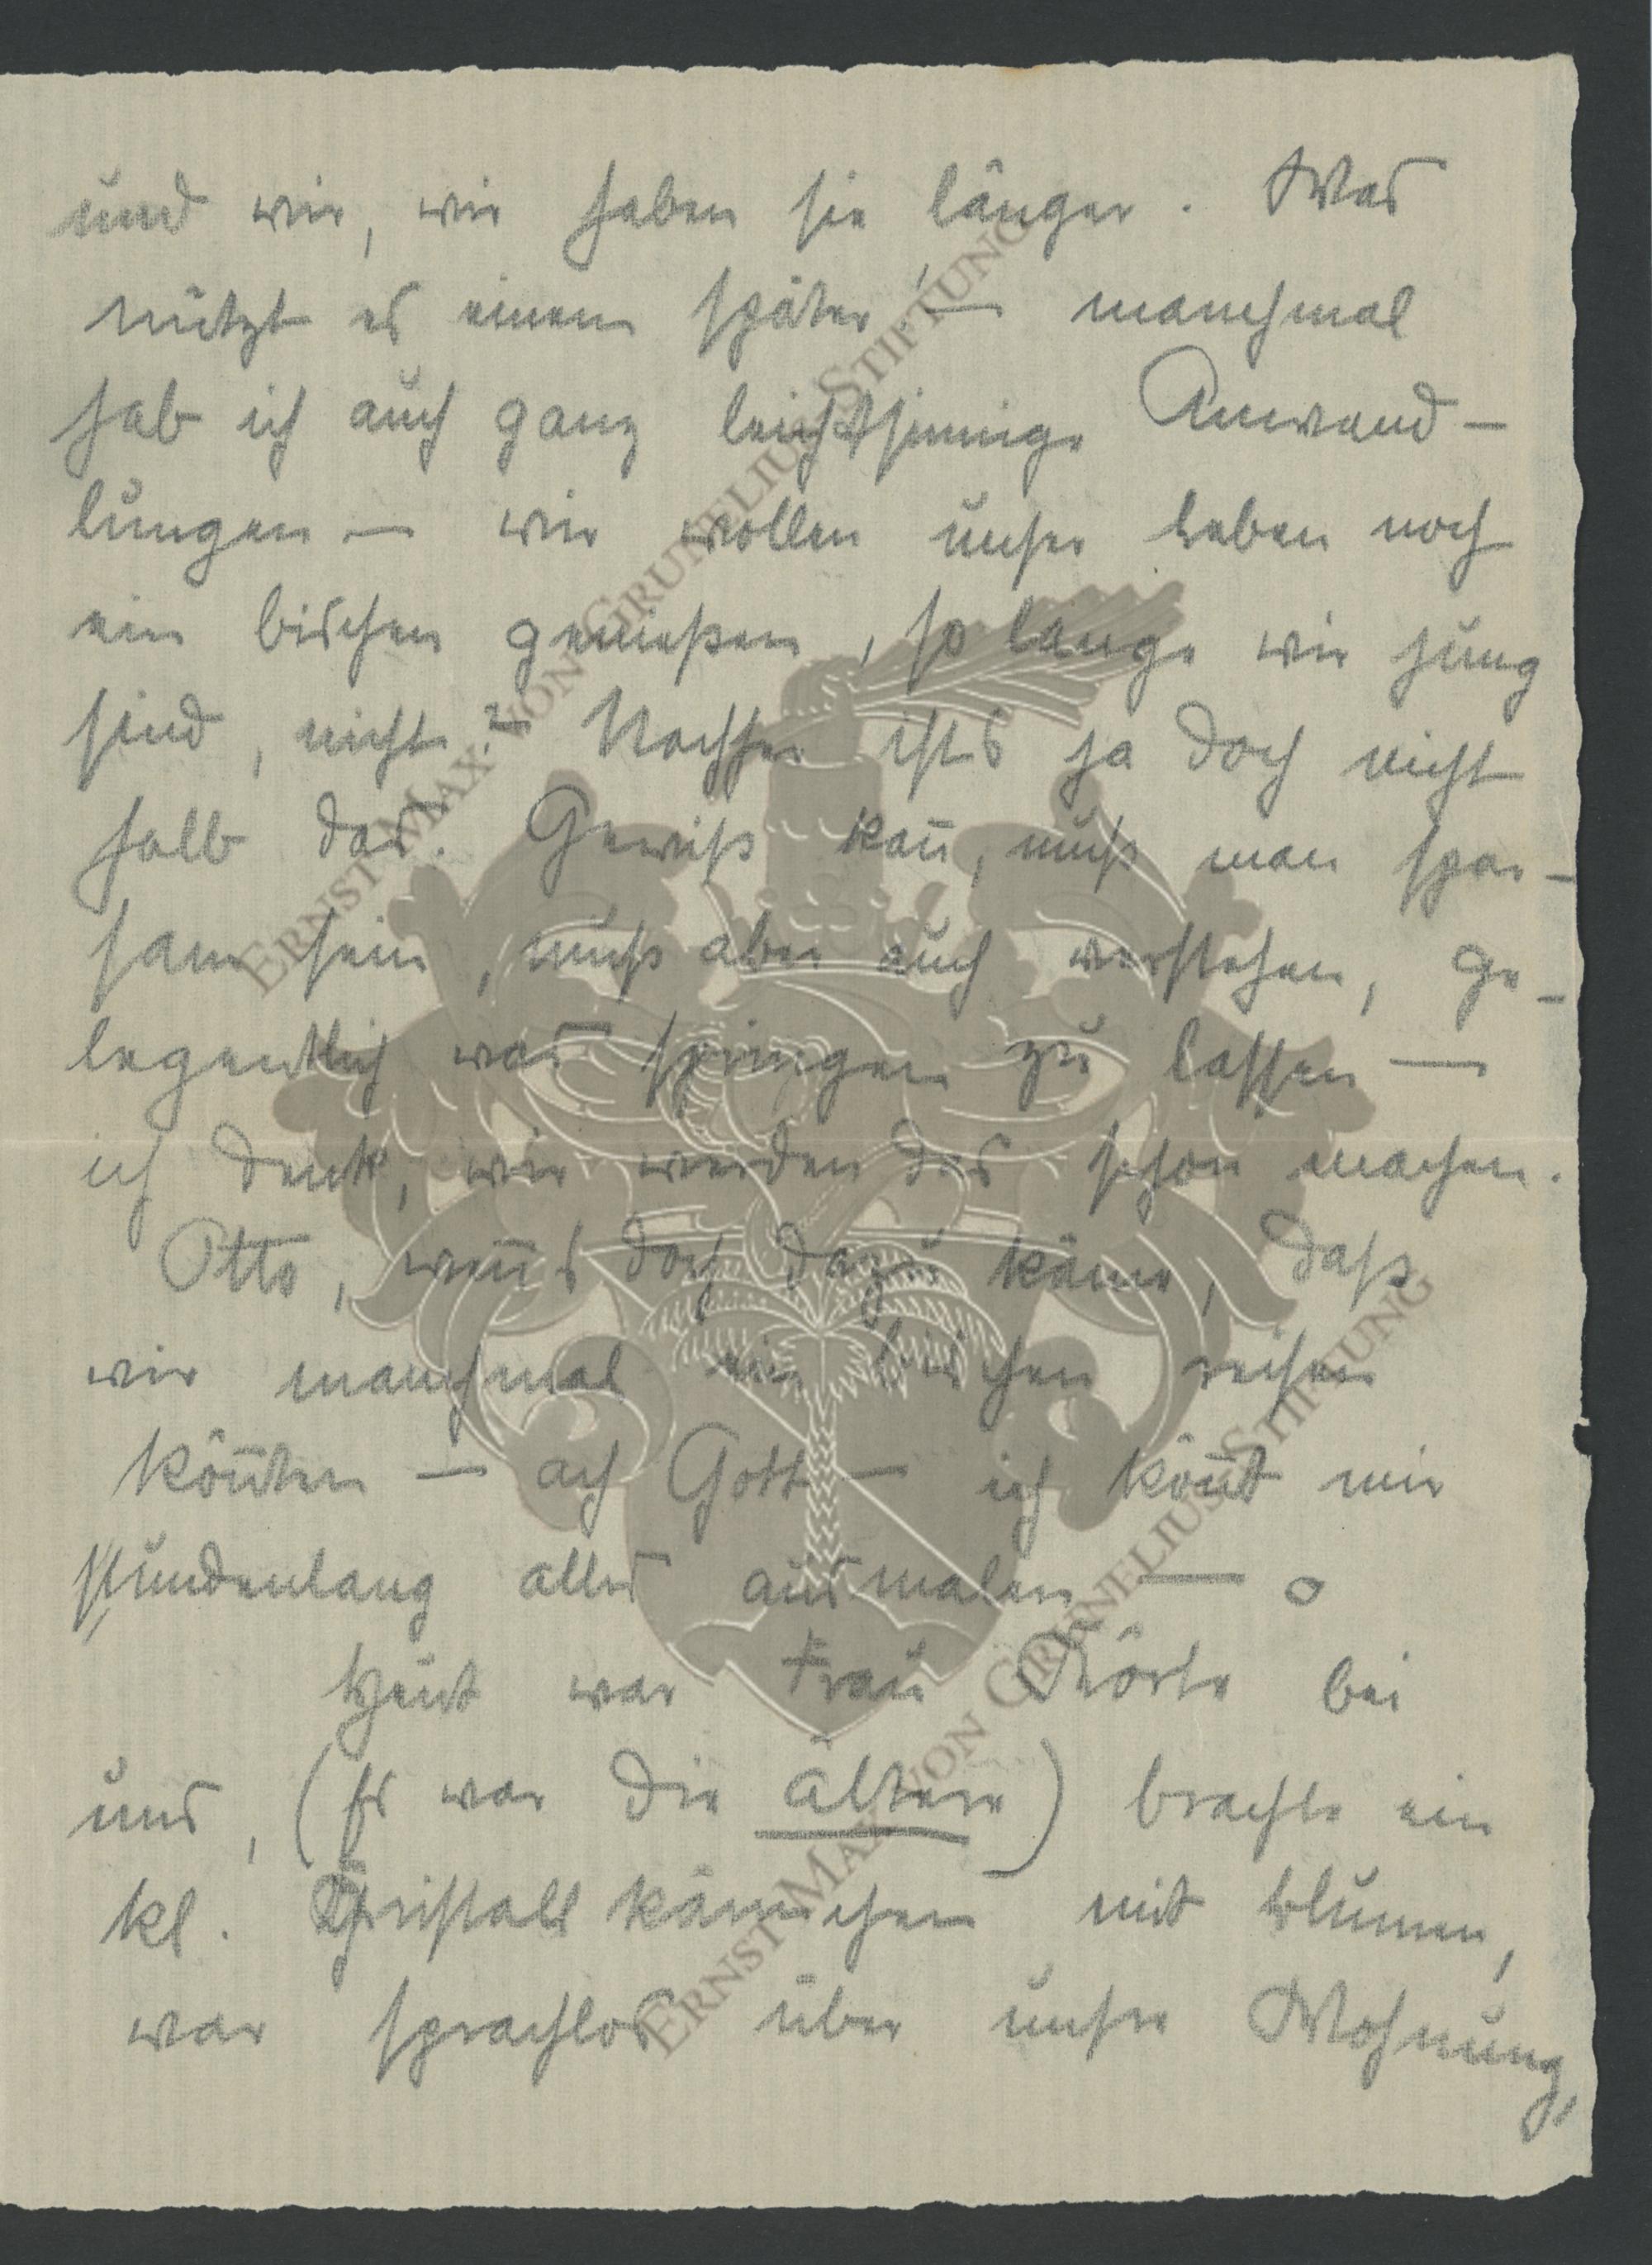 und wir, wir haben sie länger. Was
nützt es einem später, — manchmal
hab ich auch ganz leichtsinnige Anwand-
lungen — wir wollen unser Leben noch
ein bischen genießen, so lange wir jung
sind, nicht? Nachher ists ja doch nicht
halb das. Gewiß kan̅, muß man spar-
sam sein, muß aber auch verstehen, ge-
legentlich was springen zu lassen —
ich denk, wir werden das schon machen.
Otto, wen̅s doch dazu käme, daß
wir manchmal ein bischen reisen
kön̅ten — ach Gott — ich kön̅t mir
stundenlang alles ausmalen — o
Heut war Frau bei
uns, (Es war die ältere) brachte ein
kl. Christall kännchen mit Blumen,
war sprachlos über unsre Wohnung,
ERNST MAX VON GRUNELIUS-STIFTUNG
ERNST MAX VON GRUNELIUS-STIFTUNG